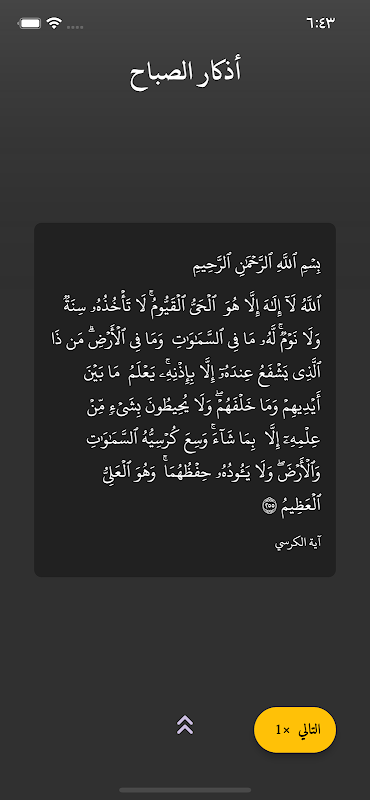 ٦:٤٣
أذكار الصباح
بِسْمِ ٱللَّهِ ٱلرَّحْمَٰنِ ٱلرَّحِيمِ
ٱللَّهُ لَآ إِلَٰهَ إِلَّا هُوَ ٱلْحَىُّ ٱلْقَيُّومُ ۚ لَا تَأْخُذُهُۥ سِنَةٌ
وَلَا نَوْمٌ ۚ لَّهُۥ مَا فِى ٱلسَّمَٰوَٰتِ وَمَا فِى ٱلْأَرْضِ ۗ مَن ذَا
ٱلَّذِى يَشْفَعُ عِندَهُۥٓ إِلَّا بِإِذْنِهِۦ ۚ يَعْلَمُ مَا بَيْنَ
أَيْدِيهِمْ وَمَا خَلْفَهُمْ ۖ وَلَا يُحِيطُونَ بِشَىْءٍ مِّنْ
عِلْمِهِۦٓ إِلَّا بِمَا شَآءَ ۚ وَسِعَ كُرْسِيُّهُ ٱلسَّمَٰوَٰتِ
وَٱلْأَرْضَ ۖ وَلَا يَـُٔودُهُۥ حِفْظُهُمَا ۚ وَهُوَ ٱلْعَلِىُّ
ٱلْعَظِيمُ ٢٥٥
آية الكرسي
التالي ×1